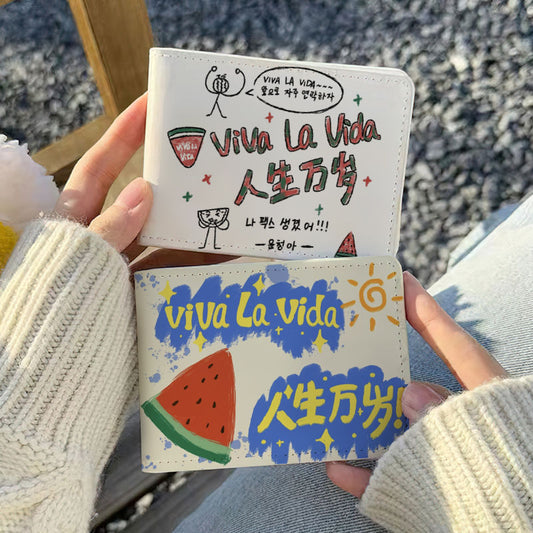 VIVA LA VIDA~~~
앞으로 자주 연락하자
ViVa La Vida
ViVa La
Vida
人生万岁
나 팩스 생겼어!!!
—윤정아—
ViVa La Vida
人生万岁!